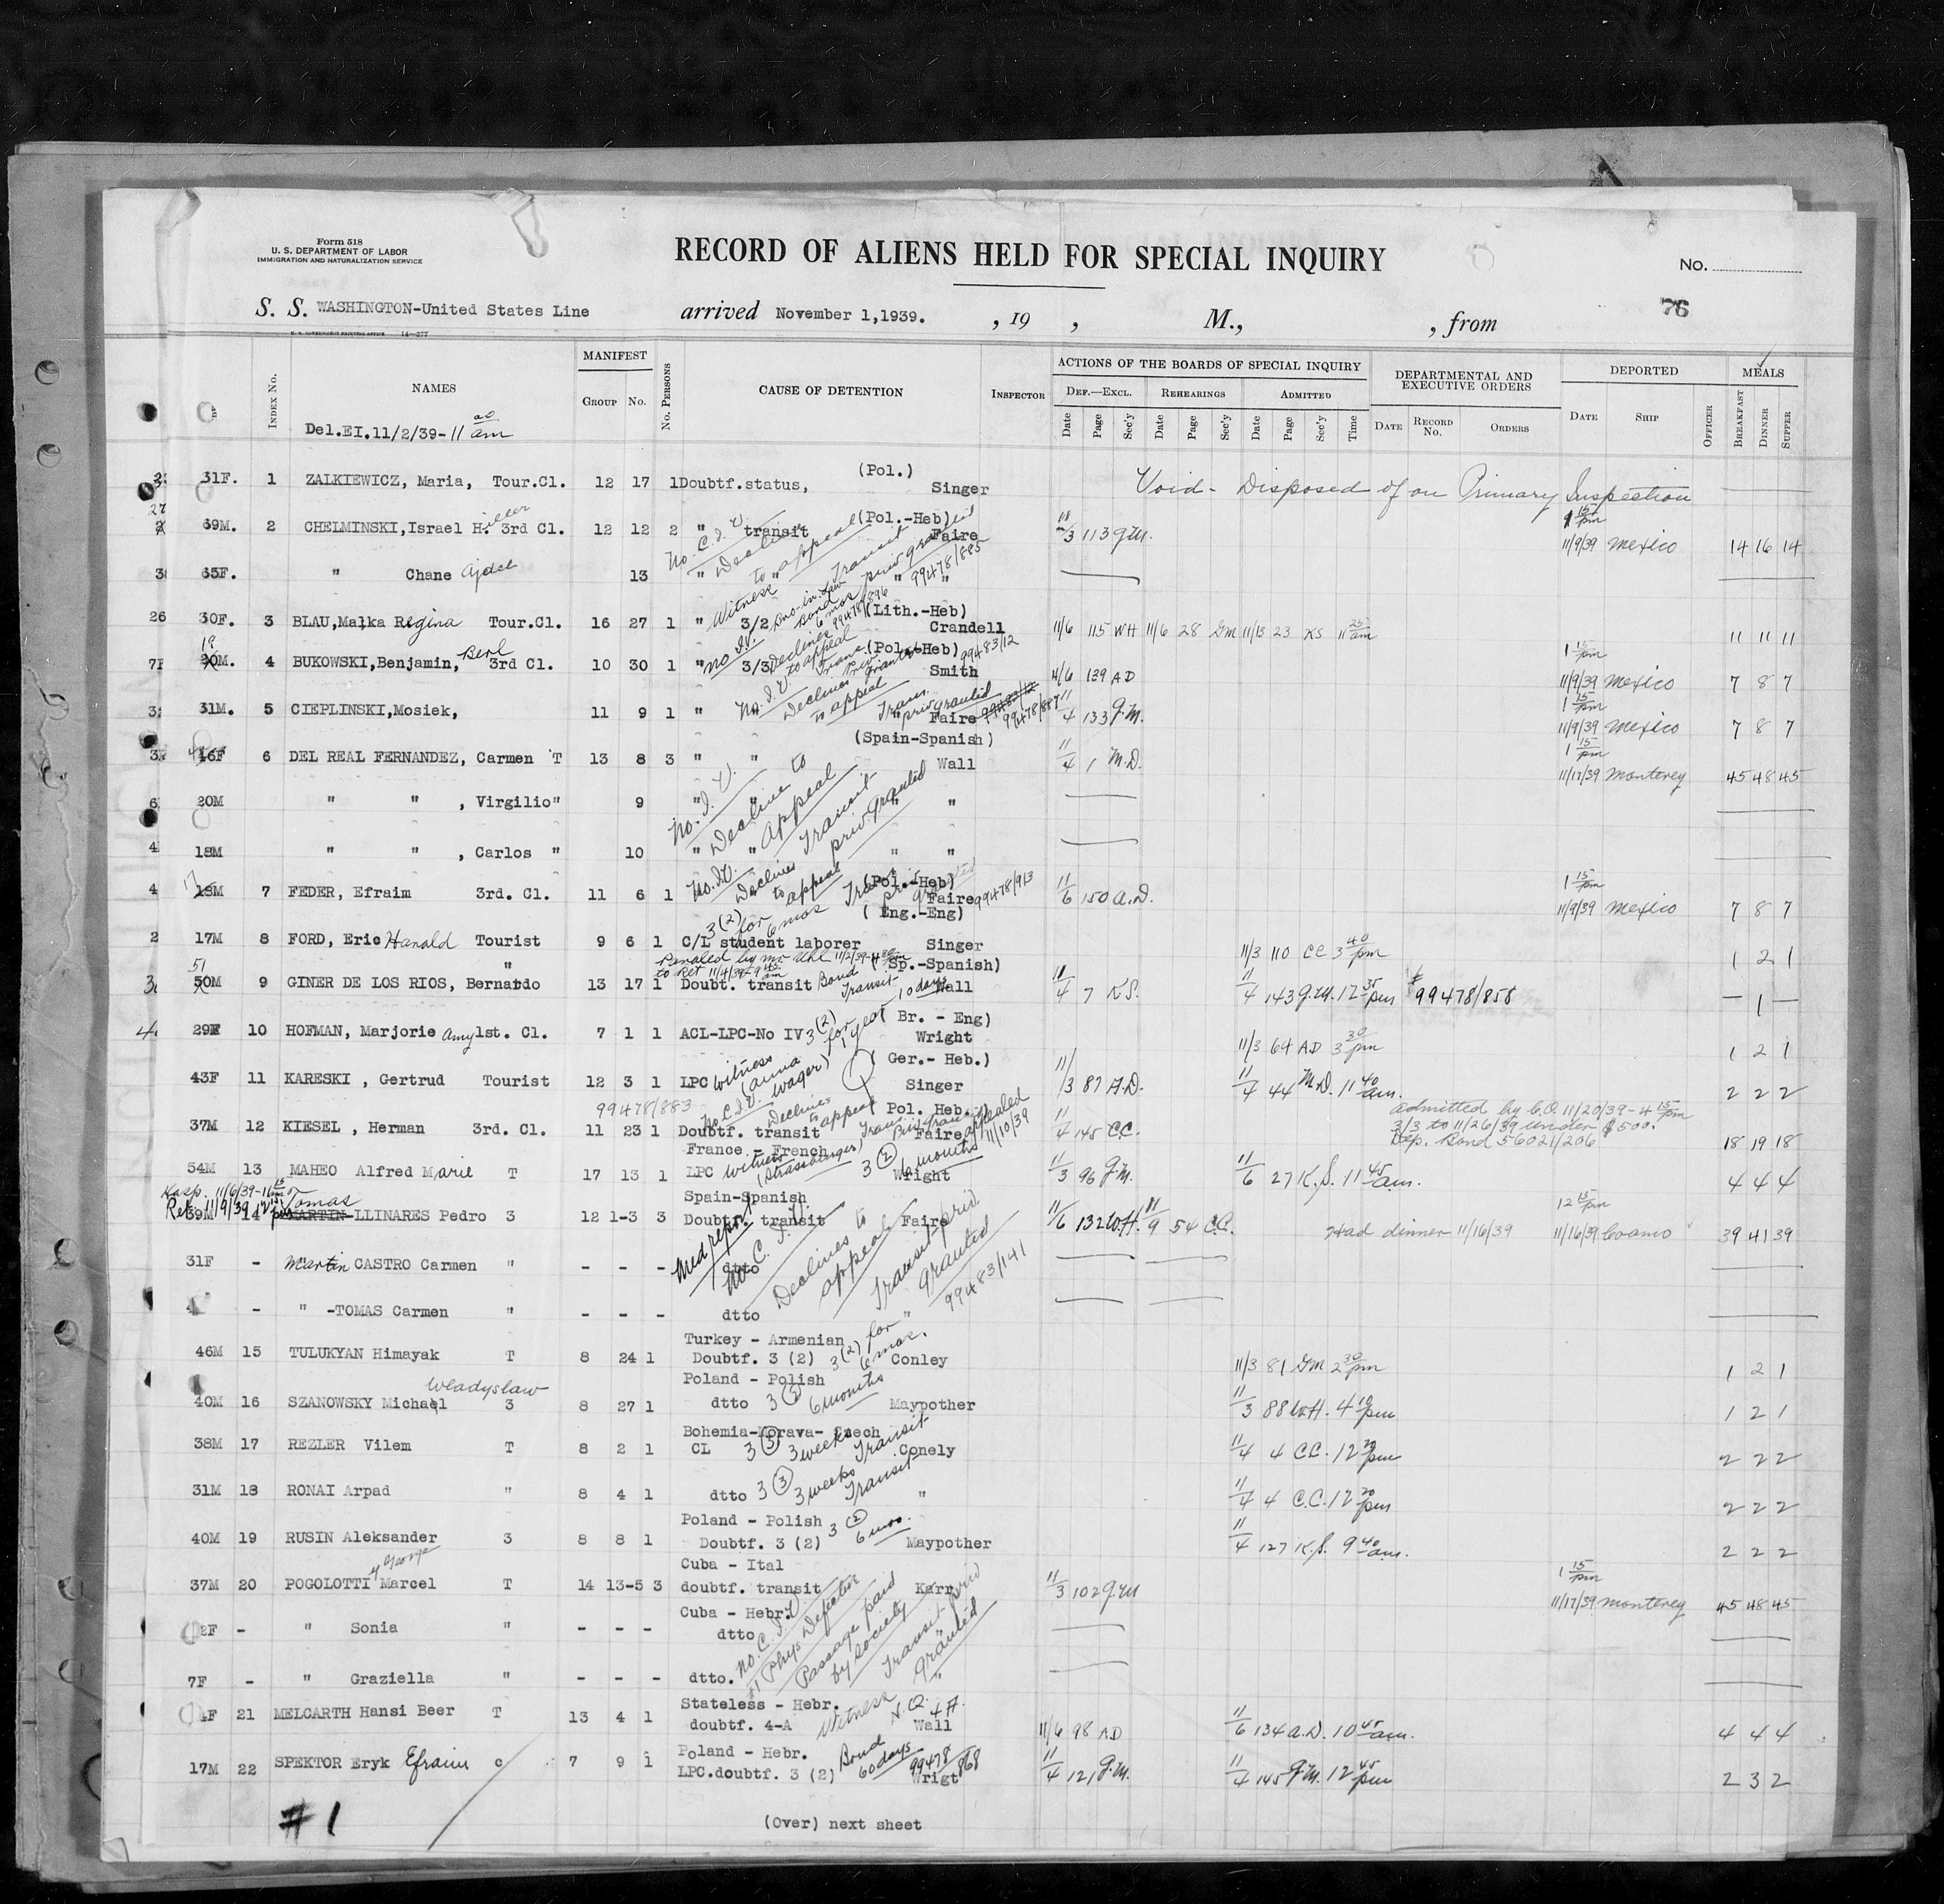 Form 518
U. S. DEPARTMENT OF LABOR
IMMIGRATION AND NATURALIZATION SERVICE
RECORD OF ALIENS HELD FOR SPECIAL INQUIRY
No.
76
S. S. WASHINGTON-United States Line arrived November 1,1939. , 19 , M., , from
U. S. GOVERNMENT PRINTING OFFICE 14-277
INDEX No. NAMES MANIFEST GROUP No. No. PERSONS CAUSE OF DETENTION INSPECTOR
ACTIONS OF THE BOARDS OF SPECIAL INQUIRY DEF.—EXCL. REHEARINGS ADMITTED
Date Page Sec'y Date Page Sec'y Date Page Sec'y Time
DEPARTMENTAL AND EXECUTIVE ORDERS DATE RECORD No. ORDERS
DEPORTED DATE SHIP OFFICER MEALS BREAKFAST DINNER SUPPER
Del.EI.11/2/39-11 am
(Pol.)
31F. 1 ZALKIEWICZ, Maria, Tour.Cl. 12 17 1 Doubtf.status, Singer Void - Disposed of on Primary Inspection
(Pol.-Heb) 1 15 pm
69M. 2 CHELMINSKI,Israel Hiller 3rd Cl. 12 12 2 " transit Faire 11/3 113 G.M. 11/9/39 Mexico 14 16 14
No C.I.V. Declines to appeal Transit priv granted 99478/885
65F. " Chane Ajdel 13 " " " "
Witness Bro-in-law Bond 6 mos 99478/896
(Lith.-Heb)
26 30F. 3 BLAU,Malka Regina Tour.Cl. 16 27 1 " 3/2 Crandell 11/6 115 WH 11/6 28 GM 11/13 23 KS 11 25 am 11 11 11
No I.V. Declines to appeal Trans. Priv. granted 99483/12
(Pol.-Heb) 1 15 pm
19 20M. 4 BUKOWSKI,Benjamin, Berl 3rd Cl. 10 30 1 " 3/3 Smith 11/6 139 AD 11/9/39 Mexico 7 8 7
No I.V. Declines to appeal Trans. priv granted 99478/887
1 15 pm
31M. 5 CIEPLINSKI,Mosiek, 11 9 1 " " Faire 11/4 133 G.M. 11/9/39 Mexico 7 8 7
(Spain-Spanish) 1 15 pm
46F 6 DEL REAL FERNANDEZ, Carmen T 13 8 3 " " Wall 11/4 1 M.D. 11/17/39 Monterey 45 48 45
No. I. V. Decline to Appeal Transit priv. granted
20M " " , Virgilio" 9 " " " "
18M " " , Carlos " 10 " " " "
No. I.V. Declines to appeal Transit priv granted 99478/913
(Pol.-Heb) 1 15 pm
17 18M 7 FEDER, Efraim 3rd. Cl. 11 6 1 Faire 11/6 150 A.D. 11/9/39 Mexico 7 8 7
3(2) for 6 mos ( Eng.-Eng)
17M 8 FORD, Eric Harold Tourist 9 6 1 C/L student laborer Singer 11/3 110 CC 3 40 pm 1 2 1
Paroled by Mr Uhl 11/2/39 to Ret 11/4/39-9 45 am ( Sp.-Spanish)
51 50M 9 GINER DE LOS RIOS, Bernardo " 13 17 1 Doubt. transit Bond Transit 10 days Wall 11/4 7 K.S. 11/4 143 G.M. 12 35 pm # 99478/858 — 1 —
( Br. - Eng)
29F 10 HOFMAN, Marjorie Amy 1st. Cl. 7 1 1 ACL-LPC-No IV 3(2) for 1 year Wright 11/3 64 AD 3 30 pm 1 2 1
( Ger.- Heb.)
43F 11 KARESKI , Gertrud Tourist 12 3 1 LPC Witness (Anna Wager) Singer 11/3 87 A.D. 11/4 44 M.D. 11 40 am. 2 2 2
99478/883 No C.I.V. Declines to appeal Trans. Priv. granted appealed 11/10/39
( Pol. Heb. Admitted by C.O. 11/20/39-4 15 pm
37M 12 KIESEL , Herman 3rd. Cl. 11 23 1 Doubtf. transit Faire 11/4 145 C.C. 3/3 to 11/26/39 under $500. Dep. Bond 56021/206 18 19 18
France - French
54M 13 MAHEO Alfred Marie T 17 13 1 LPC Witness (Strassberger) 3(2) 6 months Wright 11/3 96 G.M. 11/6 27 K.S. 11 45 am. 4 4 4
Hosp. 11/6/39-11 15 am
Ret. 11/9/39 12 15 pm Tomas Spain-Spanish 12 15 pm
39M 14 MARTIN LLINARES Pedro 3 12 1-3 3 Doubtf. transit Faire 11/6 132 W.H. 11/9 54 C.C. Had dinner 11/16/39 11/16/39 Coamo 39 41 39
Med report No C. I. V. Declines to appeal Transit priv granted 99483/141
31F - Martin CASTRO Carmen " - - - dtto
- " -TOMAS Carmen " - - - dtto "
Turkey - Armenian
46M 15 TULUKYAN Himayak T 8 24 1 Doubtf. 3 (2) 3(2) for 6 mos. Conley 11/3 81 GM 2 30 pm 1 2 1
Wladyslaw Poland - Polish
40M 16 SZANOWSKY Michael 3 8 27 1 dtto 3(2) 6 months Maypother 11/3 88 W.H. 4 10 pm 1 2 1
Bohemia-Morava- Czech
38M 17 REZLER Vilem T 8 2 1 CL 3(3) 3 weeks Transit Conely 11/4 4 C.C. 12 20 pm 2 2 2
31M 18 RONAI Arpad " 8 4 1 dtto 3(3) 3 weeks Transit " 11/4 4 C.C. 12 20 pm 2 2 2
Poland - Polish
40M 19 RUSIN Aleksander 3 8 8 1 Doubtf. 3 (2) 3(2) 6 mos. Maypother 11/4 127 K.S. 9 40 am. 2 2 2
y George Cuba - Ital 1 15 pm
37M 20 POGOLOTTI Marcel T 14 13-5 3 doubtf. transit Karr 11/3 102 G.M 11/17/39 Monterey 45 48 45
Cuba - Hebr.
2F - " Sonia " - - - dtto "
No. C. I. V. #1 Phys Defective Passage paid by society Transit priv granted
7F - " Graziella " - - - dtto. "
Stateless - Hebr.
4F 21 MELCARTH Hansi Beer T 13 4 1 doubtf. 4-A Witness N.Q. 4A. Wall 11/6 98 AD 11/6 134 A.D. 10 45 am. 4 4 4
Poland - Hebr.
17M 22 SPEKTOR Eryk Efraim c 7 9 1 LPC.doubtf. 3 (2) Bond 60 days 99478/868 Wrigt 11/4 121 G.M. 11/4 145 G.M. 12 45 pm 2 3 2
#1
(Over) next sheet